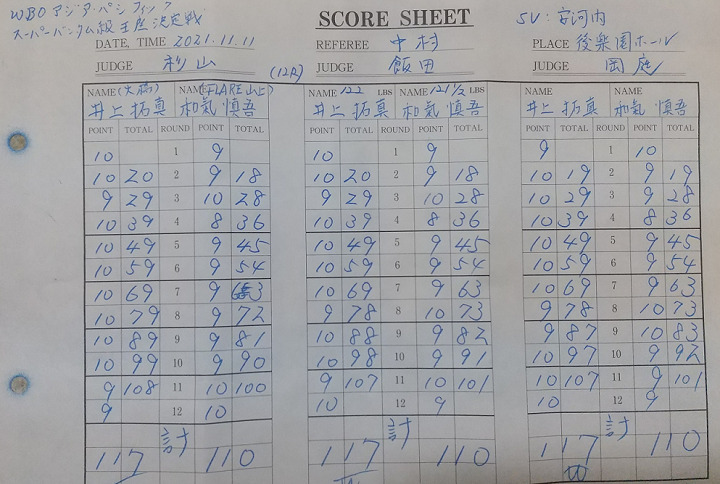 WBO アジア・パシフィック
スーパーバンタム級 王座決定戦
SCORE SHEET
SV: 安河内
DATE, TIME 2021.11.11
REFEREE 中村
PLACE 後楽園ホール
JUDGE 杉山 (12R)
JUDGE 飯田
JUDGE 岡庭
NAME (大橋) NAME (FLARE山上) NAME 122 LBS NAME 121 1/2 LBS NAME NAME
井上 拓真 和氣 慎吾 井上 拓真 和氣 慎吾 井上 拓真 和氣 慎吾
POINT TOTAL ROUND POINT TOTAL POINT TOTAL ROUND POINT TOTAL POINT TOTAL ROUND POINT TOTAL
10 1 9 10 1 9 9 1 10
10 20 2 9 18 10 20 2 9 18 10 19 2 9 19
9 29 3 10 28 9 29 3 10 28 10 29 3 9 28
10 39 4 8 36 10 39 4 8 36 10 39 4 8 36
10 49 5 9 45 10 49 5 9 45 10 49 5 9 45
10 59 6 9 54 10 59 6 9 54 10 59 6 9 54
10 69 7 9 63 10 69 7 9 63 10 69 7 9 63
10 79 8 9 72 9 78 8 10 73 9 78 8 10 73
10 89 9 9 81 10 88 9 9 82 9 87 9 10 83
10 99 10 9 90 10 98 10 9 91 10 97 10 9 92
9 108 11 10 100 9 107 11 10 101 10 107 11 9 101
9 12 10 10 12 9 10 12 9
計 計 計
117 110 117 110 117 110
W